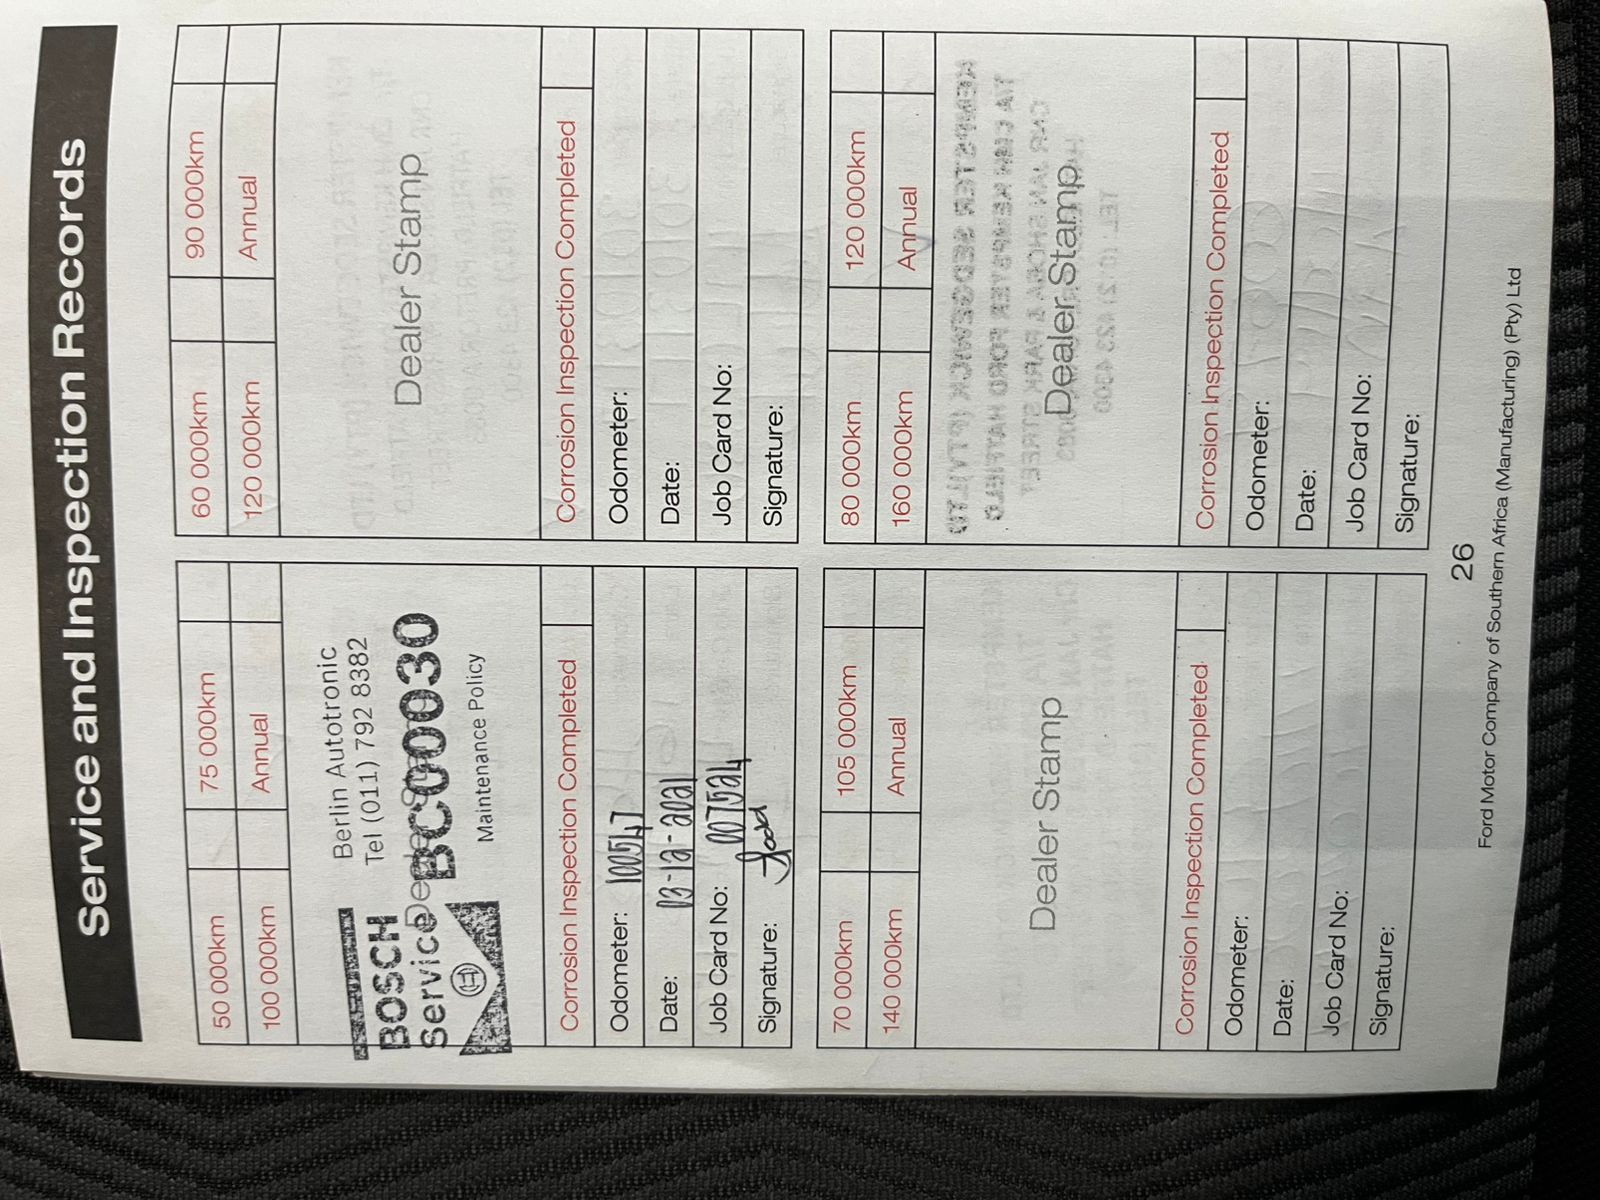 Service and Inspection Records
50 000km 75 000km
100 000km Annual
BOSCH
Service
Berlin Autotronic
Tel (011) 792 8382
BC00030
Maintenance Policy
Corrosion Inspection Completed
Odometer: 100547
Date: 03-12-2021
Job Card No: 007524
Signature:
60 000km 90 000km
120 000km Annual
Dealer Stamp
Corrosion Inspection Completed
Odometer:
Date:
Job Card No:
Signature:
70 000km 105 000km
140 000km Annual
Dealer Stamp
Corrosion Inspection Completed
Odometer:
Date:
Job Card No:
Signature:
80 000km 120 000km
160 000km Annual
Dealer Stamp
Corrosion Inspection Completed
Odometer:
Date:
Job Card No:
Signature:
26
Ford Motor Company of Southern Africa (Manufacturing) (Pty) Ltd